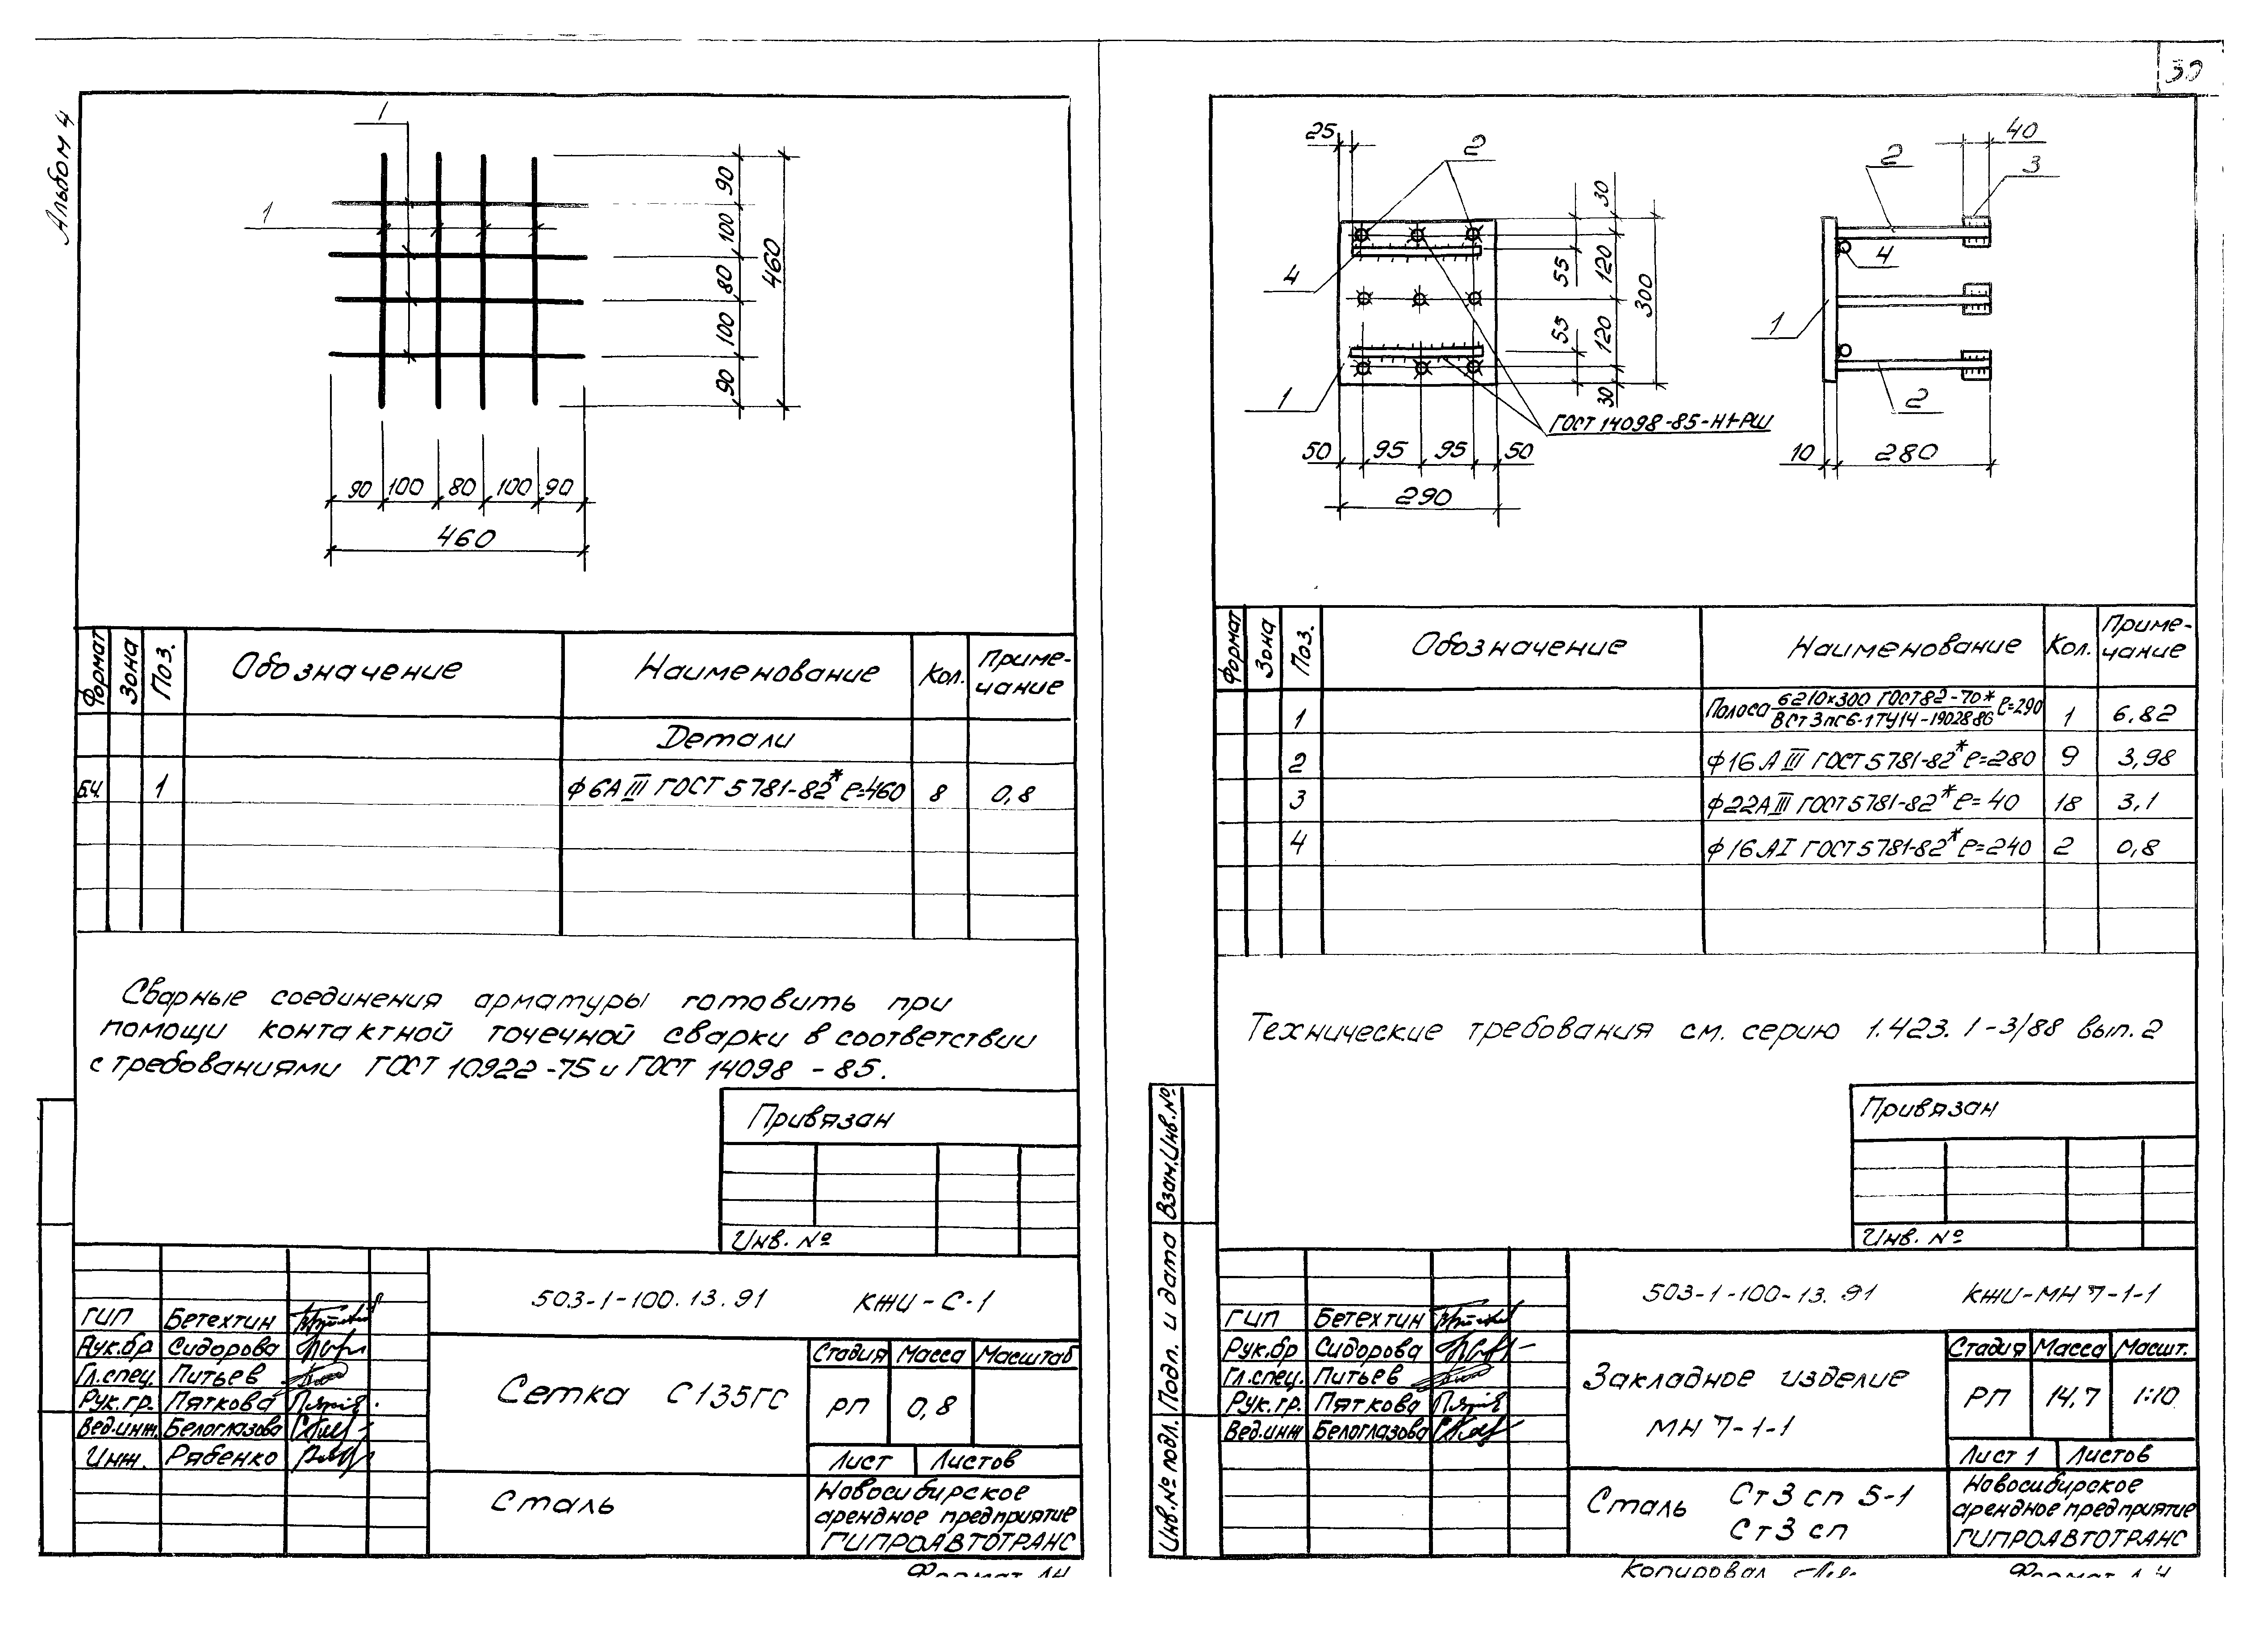 Альбом 4
30
1
1
90
100
80
100
90
460
90 100 80 100 90
460
Формат Зона Поз. Обозначение Наименование Кол. Приме-
чание
Детали
БЧ. 1 ф6АIII ГОСТ 5781-82* ℓ=460 8 0,8
Сварные соединения арматуры готовить при
помощи контактной точечной сварки в соответствии
с требованиями ГОСТ 10922-75 и ГОСТ 14098-85.
Привязан
Инв. №
503-1-100.13.91 КЖИ-С-1
ГИП Бетехтин
Рук.бр Сидорова
Гл.спец. Питьев
Рук.гр. Пяткова
Вед.инж. Белоглазова
Инж. Рябенко
Сетка С135ГС
Стадия Масса Масштаб
РП 0,8
Лист Листов
Сталь
Новосибирское
арендное предприятие
ГИПРОАВТОТРАНС
Формат А4
25
2
4
1
30
120
120
30
55
55
300
ГОСТ 14098-85-Н1-РШ
50 95 95 50
290
40
2
3
4
1
2
10 280
Формат Зона Поз. Обозначение Наименование Кол. Приме-
чание
1 Полоса 6210х300 ГОСТ 82-70* ℓ=290 1 6,82
ВСт3пс6-1ТУ14-1902886
2 ф16АIII ГОСТ 5781-82* ℓ=280 9 3,98
3 ф22АIII ГОСТ 5781-82* ℓ=40 18 3,1
4 ф16АI ГОСТ 5781-82* ℓ=240 2 0,8
Технические требования см. серию 1.423.1-3/88 вып.2
Привязан
Инв. №
Взам.Инв.№
Подп. и дата
Инв.№ подл.
503-1-100-13.91 КЖИ-МН 7-1-1
ГИП Бетехтин
Рук.бр Сидорова
Гл.спец. Питьев
Рук.гр. Пяткова
Вед.инж Белоглазова
Закладное изделие
МН 7-1-1
Стадия Масса Масшт.
РП 14,7 1:10
Лист 1 Листов
Сталь Ст3сп 5-1
Ст3сп
Новосибирское
арендное предприятие
ГИПРОАВТОТРАНС
Копировал
Формат А4